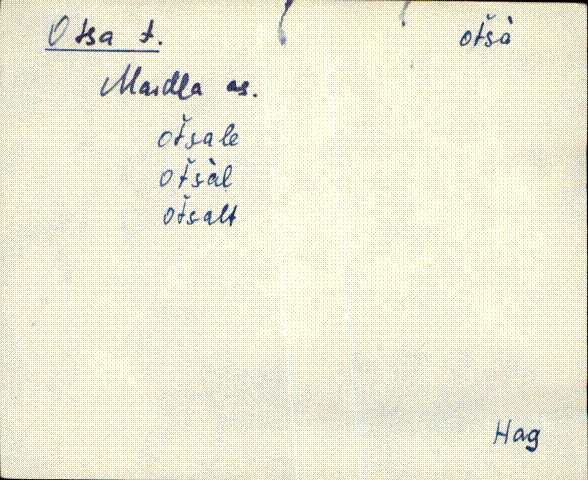 Otsa t. ot̆sà
Maidla as.
ot̆sale
ot̆sàl
ot̆salt
Hag